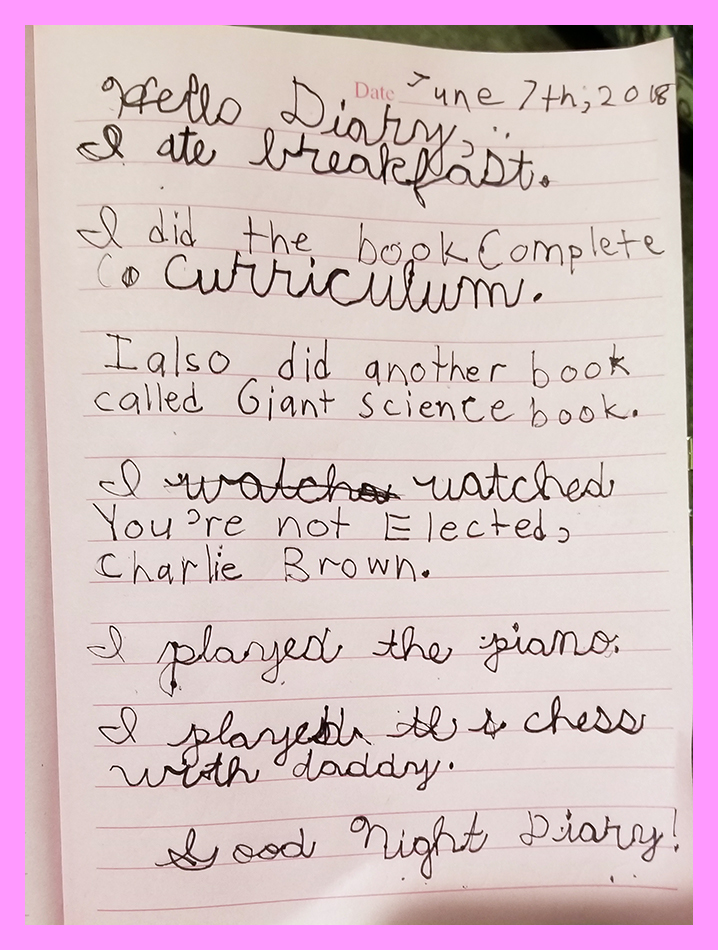 Date June 7th, 2018
Hello Diary,
I ate breakfast.
I did the book Complete
Curriculum.
I also did another book
called Giant science book.
I watched
You're not Elected,
Charlie Brown.
I played the piano.
I played chess
with daddy.
Good Night Diary!